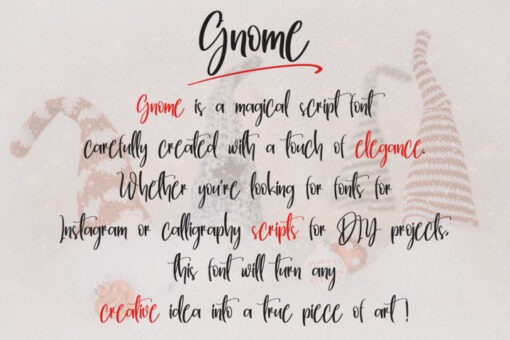 Gnome
Gnome is a magical script font
carefully created with a touch of elegance.
Whether you're looking for fonts for
Instagram or calligraphy scripts for DIY projects,
this font will turn any
creative idea into a true piece of art !